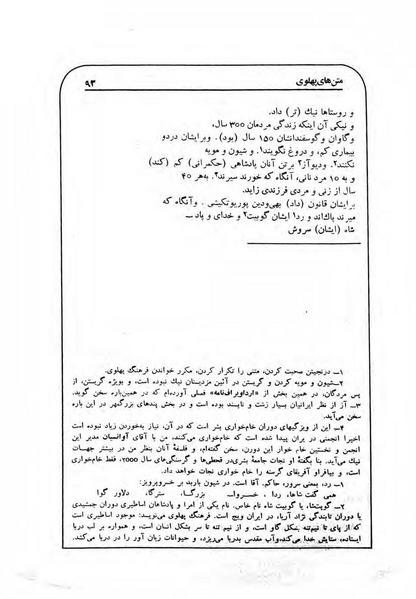 متن‌های پهلوی
۹۳
و روستاها نیک (تر) داد.
و نیکی آن اینکه زندگی مردمان ۳۰۰ سال،
و گاوان و گوسفندانشان ۱۵۰ سال (بود). وبرایشان دردو
بیماری کم، و دروغ نگویند۱. و شیون و مویه
نکنند۲. ودیوآز۳ برتن آنان پادشاهی (حکمرانی) کم (کند)
و به ۱۵ مرد نانی، آنگاه که خورند سیرند۴. به‌هر ۴۰
سال از زنی و مردی فرزندی زاید.
برایشان قانون (داد) بهی‌ودین پوریوتکیشی . وآنگاه که
میرند پاك‌اند و رد۱ ایشان گوبیت۲ و خدای و پاد ــ
شاه (ایشان) سروش
۱ــ درنجیتن صحبت کردن، متنی را تکرار کردن، مکرر خواندن فرهنگ پهلوی.
۲ــ شیون و مویه کردن و گریستن در آئین مزدیسنان نیك نبوده است، و بویژه گریستن، از
پس مردگان، در همین بخش از «ارداویراف‌نامه» فصلی آورده‌ام که در همین‌باره سخن گوید.
۳ــ آز از نظر ایرانیان بسیار زشت و ناپسند بوده است و در بخش پندهای بزرگمهر. در این باره
سخن می‌آید.
۴ــ این از ویژگیهای دوران خام‌خواری بشر است که در آن، نیاز به‌خوردن زیاد نبوده است
اخیرا انجمنی در یران پیدا شده است که خام‌خواری می‌کنند، من با آقای آوانسیان مدیر این
انجمن و نخستین خام خوار این دوران، سخن گفته‌ام، و فلسفهٔ آنان بنظر من در بیشتر جهات
نیك می‌آید. بنا بگفتهٔ او نجات جامعهٔ بشری‌در قحطی‌ها و گرسنگی‌های سال ۲۰۰۰، فقط خام‌خواری
است، و بیافراو آفریقای گرسنه را خام خواری نجات خواهد داد.
۱ــ رد، یعنی سرور، حاکم. آقا است. در شیون باربد بر خسروپرویز:
همی گفت شاها، ردا ، خسروا بزرگا، سترگا، دلاور گوا
۲ــ گوپتشا، یا گوبیت شاه نام خاص. نام یکی از امرا و پادشاهان اساطیری دوران جمشیدی
یا دوران تابندگی نژاد آریا، در ایران ویج است. فرهنگ پهلوی می‌نویسد: موجود اساطیری است
که از پای تا نیم‌تنه بشکل گاو است، و از نیم تنه تا سر بشکل انسان است، و همواره بر لب دریا
ایستاده، ستایش خدا می‌کند، وآب مقدس بدریا می‌ریزد، و حیوانات زیان آور را در دریا می‌کشد.